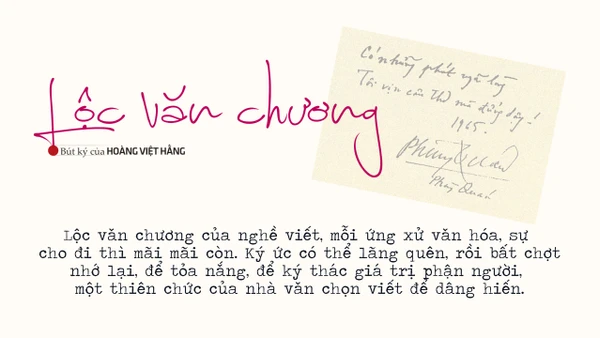 Có những phút ngã lòng
Tôi vịn câu thơ mà đứng dậy!
1965.
Phùng Quán
Phùng Quán
Lộc văn chương
Bút ký của HOÀNG VIỆT HẰNG
Lộc văn chương của nghề viết, mỗi ứng xử văn hóa, sự
cho đi thì mãi mãi còn. Ký ức có thể lãng quên, rồi bất chợt
nhớ lại, để tỏa nắng, để ký thác giá trị phận người,
một thiên chức của nhà văn chọn viết để dâng hiến.